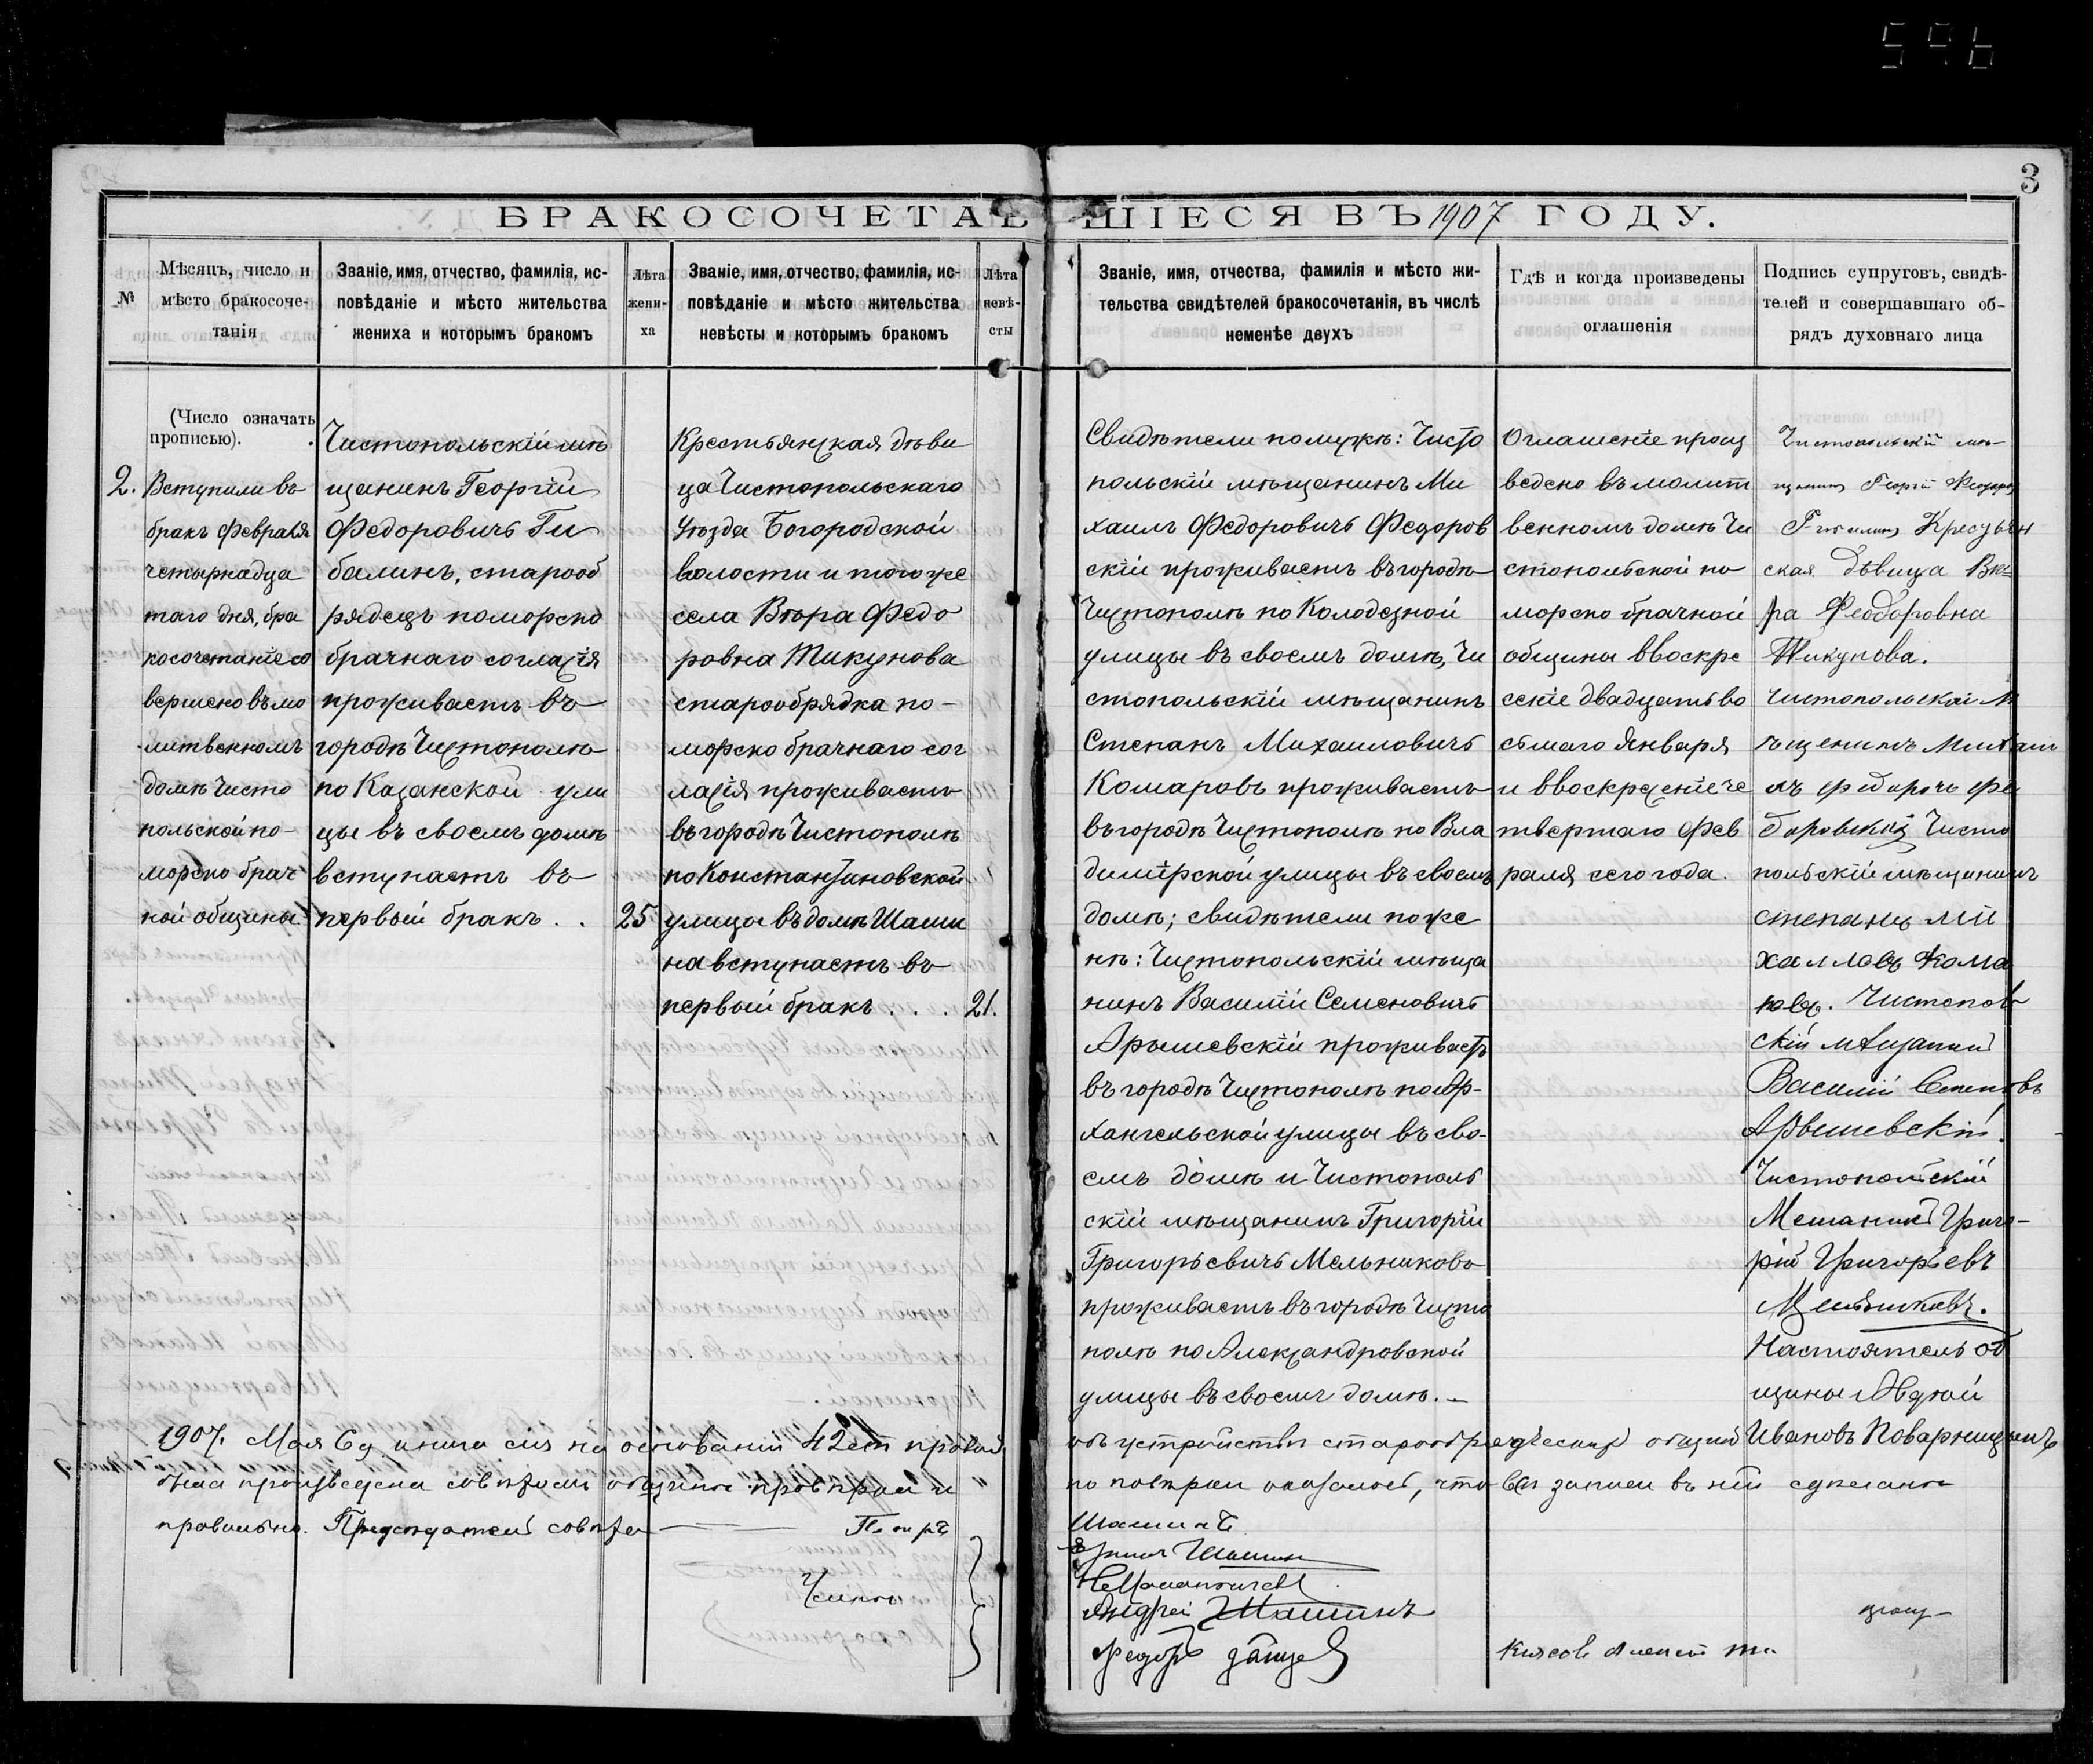 596
3
БРАКОСОЧЕТАВШІЕСЯ ВЪ 1907 ГОДУ.
№
Мѣсяцъ, число и
мѣсто бракосоче-
танія
Званіе, имя, отчество, фамилія, ис-
повѣданіе и мѣсто жительства
жениха и которымъ бракомъ
Лѣта
жени-
ха
Званіе, имя, отчество, фамилія, ис-
повѣданіе и мѣсто жительства
невѣсты и которымъ бракомъ
Лѣта
невѣ-
сты
Званіе, имя, отчества, фамилія и мѣсто жи-
тельства свидѣтелей бракосочетанія, въ числѣ
неменѣе двухъ
Гдѣ и когда произведены
оглашенія
Подпись супруговъ, свидѣ-
телей и совершавшаго об-
рядъ духовнаго лица
(Число означать
прописью).
2. Вступили въ
бракъ Февраля
четырнадца
таго дня, бра
косочетаніе со
вершено въ мо
литвенномъ
домѣ Чисто
польской по-
морско брач
ной общины
Чистопольскій мѣ
щанинъ Георгій
Федоровичъ Ги
балинъ, старооб
рядецъ поморско
брачнаго согласія
проживаетъ въ
городѣ Чистополѣ
по Казанской ули
цы въ своемъ домѣ
вступаетъ въ
первый бракъ . . 25
Крестьянская дѣви
ца Чистопольскаго
Уѣзда Богородской
волости и тогоже
села Вѣра Федо
ровна Тикунова
старообрядка по-
морско брачнаго сог
ласія проживаетъ
въ городѣ Чистополѣ
по Константиновской
улицы въ домѣ Шаши
на вступаетъ въ
первый бракъ . . . 21.
Свидѣтели по мужѣ: Чисто
польскій мѣщанинъ Ми
хаилъ Федоровичъ Федоров
скій проживаетъ въ городѣ
Чистополѣ по Колодезной
улицы въ своемъ домѣ, Чи
стопольскій мѣщанинъ
Степанъ Михаиловичъ
Комаровъ проживаетъ
въ городѣ Чистополѣ по Вла
димірской улицы въ своемъ
домѣ; свидѣтели по же
нѣ: Чистопольскій мѣща
нинъ Василій Семеновичъ
Арышевскій проживаетъ
въ городѣ Чистополѣ по Ар-
хангельской улицы въ сво-
емъ домѣ и Чистополь
скій мѣщанинъ Григорій
Григорьевичъ Мельниковъ
проживаетъ въ городѣ Чисто
полѣ по Александровской
улицы въ своемъ домѣ.
Оглашеніе произ
ведено въ молит
венномъ домѣ Чи
стопольской по
морско брачной
общины ввоскре
сеніе двадцать во
сьмаго Января
и ввоскресеніе че
твертаго Фев
раля сего года.
Чистопольскій мѣ-
щанинъ Георгій Федоров
Гибалинъ Крестьян
ская дѣвица Вѣ-
ра Феодоровна
Тикунова.
Чистопольскай м
Чисто
польскій мѣщанинъ
степанъ Ми
Чистополь
скій мѣщанинъ
Василій Семенов
Арышевскій.
Чистопольскій
Мещанинъ Григо-
рій Григорьевъ
Мельниковъ.
Настоятель об
щины Авдѣй
Ивановъ Поварницынъ
1907. Мая 6д книга сія на основаніи 42 ст правил объ устройствѣ старообрядческихъ общин
была произведена совѣтомъ общины провѣрка и по повѣрки оказалось, что всѣ записи въ ней сделаны
правильно. Предсѣдатель совѣта — Петръ Шашинъ
Члены
Шашинъ
Андрей Шашинъ
Федоръ